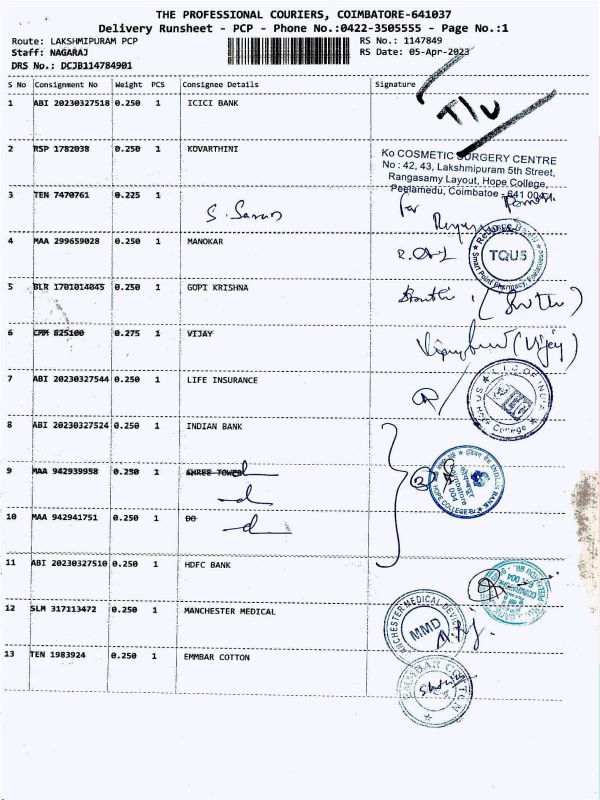 THE PROFESSIONAL COURIERS, COIMBATORE-641037
Delivery Runsheet - PCP - Phone No.:0422-3505555 - Page No.:1
Route: LAKSHMIPURAM PCP RS No.: 1147849
Staff: NAGARAJ RS Date: 05-Apr-2023
DRS No.: DCJB114784901
S No Consignment No Weight PCS Consignee Details Signature
T/U
1 ABI 20230327518 0.250 1 ICICI BANK
2 RSP 1782038 0.250 1 KOVARTHINI
Ko COSMETIC SURGERY CENTRE
No : 42, 43, Lakshmipuram 5th Street,
Rangasamy Layout, Hope College,
Peelamedu, Coimbatoe - 641 004
3 TEN 7470761 0.225 1
S. Saran
for
4 MAA 299659028 0.250 1 MANOKAR
TQU5
5 BLR 1701014045 0.250 1 GOPI KRISHNA
6 CMM 825100 0.275 1 VIJAY
(Vijay)
7 ABI 20230327544 0.250 1 LIFE INSURANCE
L I C OF INDIA
Hope College
8 ABI 20230327524 0.250 1 INDIAN BANK
9 MAA 942939958 0.250 1 SHREE TOWER
INDIAN BANK
Coimbatore
004
HOPE COLLEGE Br
10 MAA 942941751 0.250 1 DO
11 ABI 20230327510 0.250 1 HDFC BANK
12 SLM 317113472 0.250 1 MANCHESTER MEDICAL
MMD
13 TEN 1983924 0.250 1 EMMBAR COTTON
EMMBAR COTTON